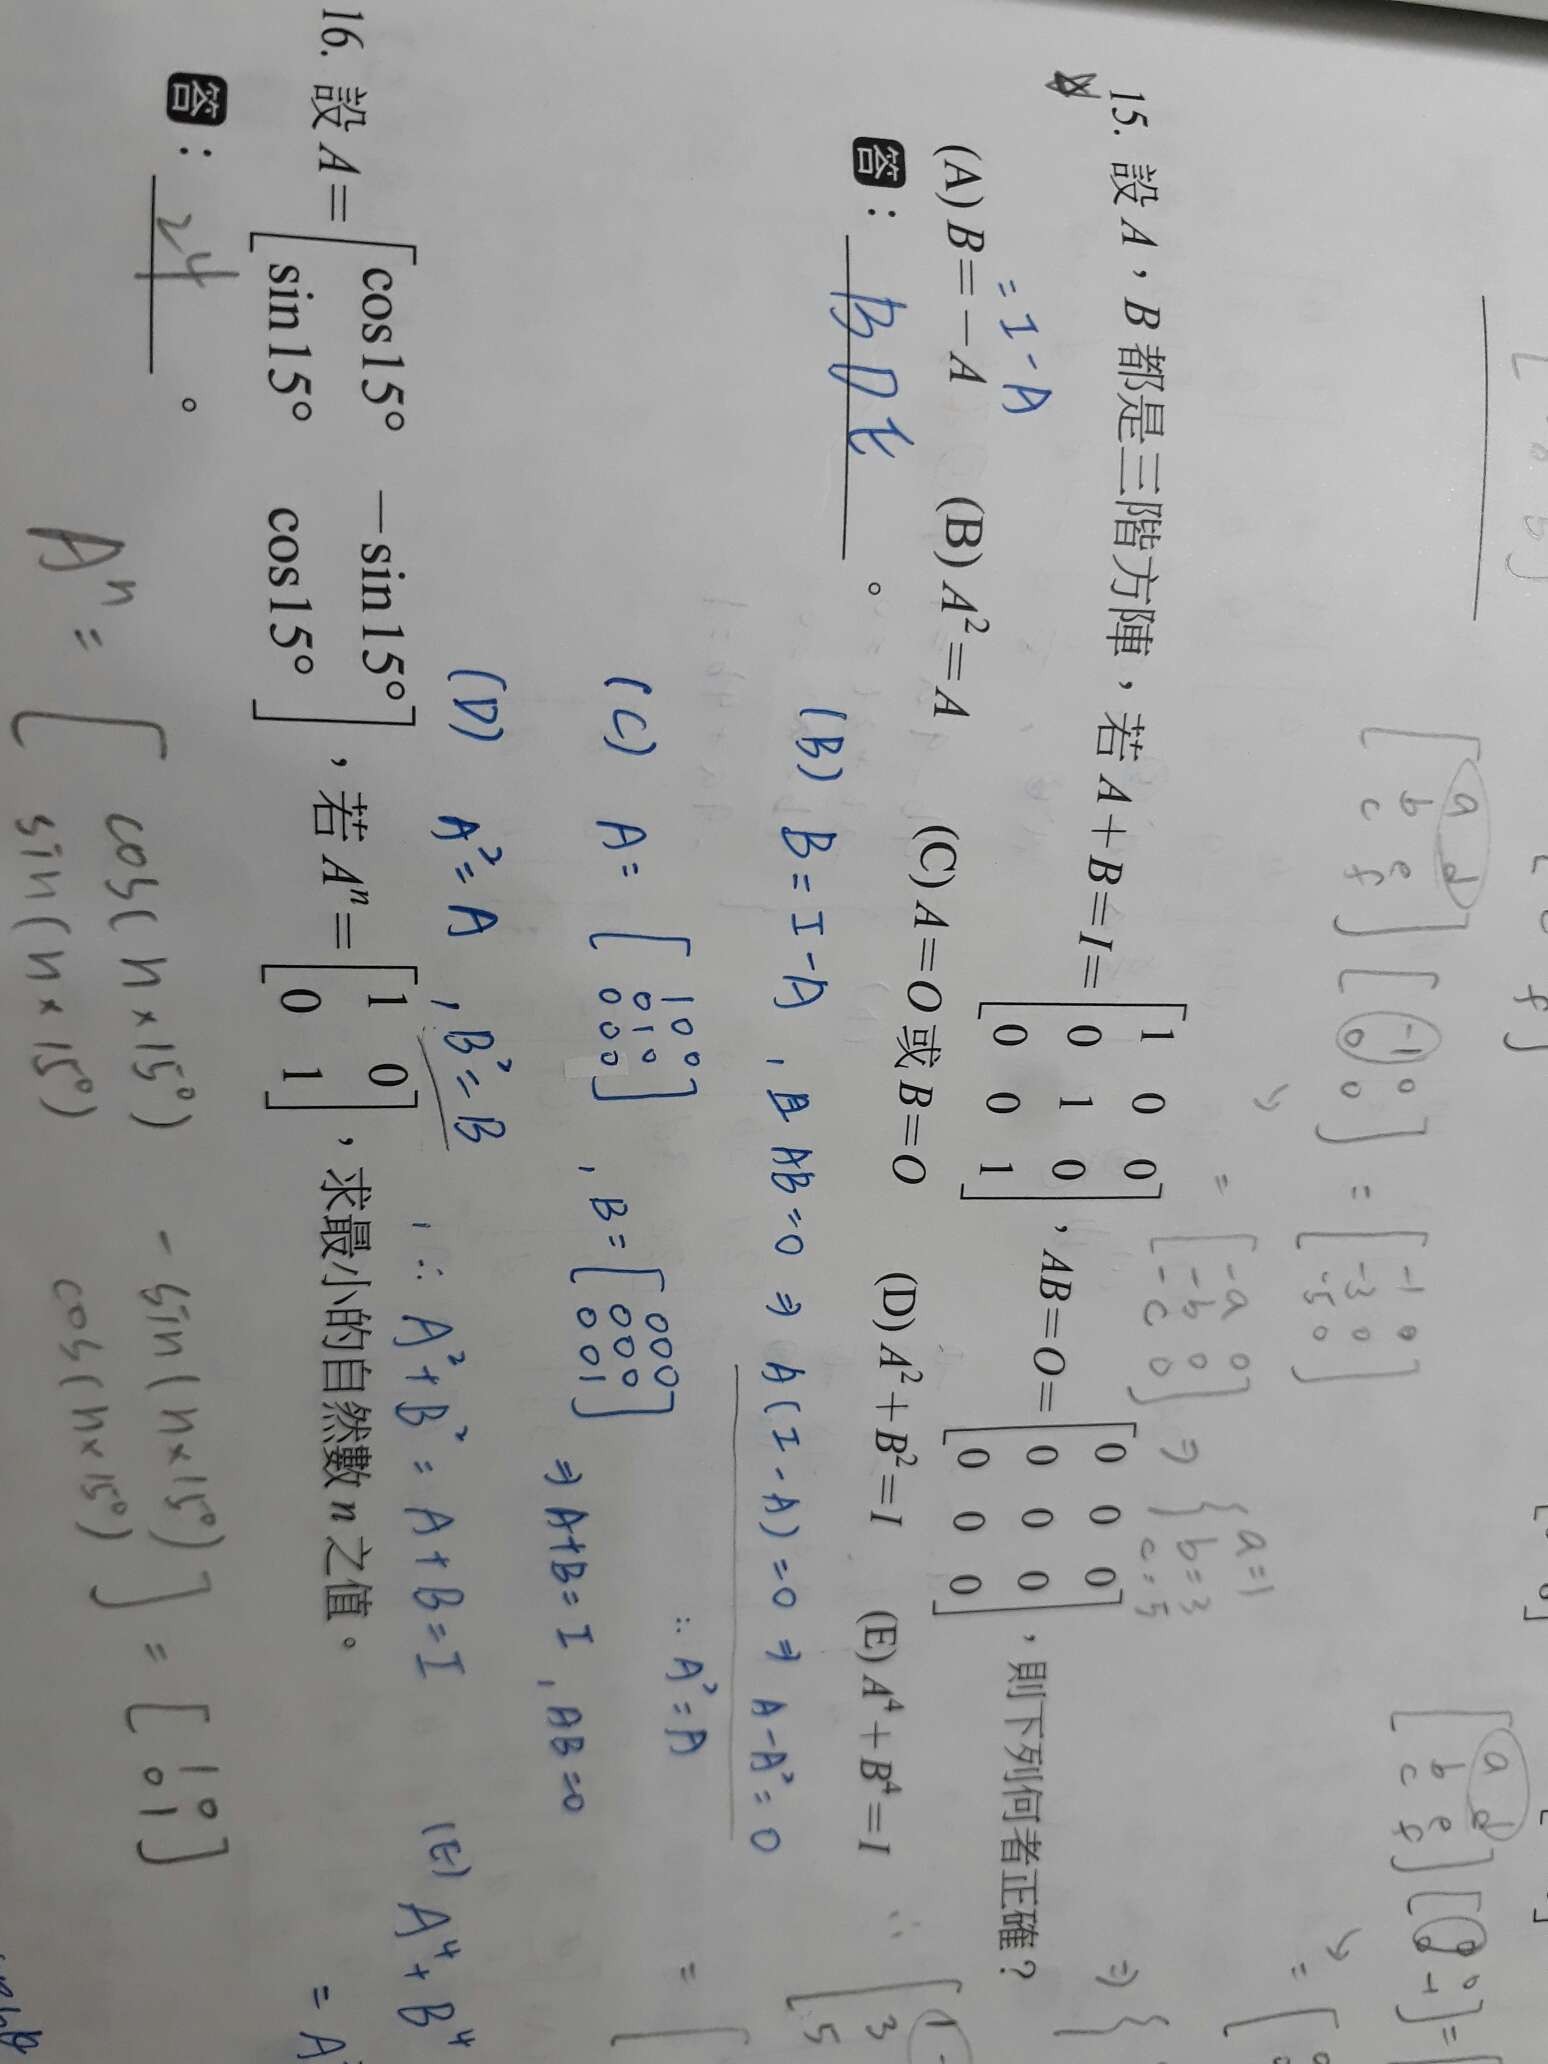 15. 設 A，B 都是三階方陣，若 A＋B＝I＝[1 0 0 0 1 0 0 0 1]，AB＝O＝[0 0 0 0 0 0 0 0 0]，則下列何者正確？
= I - A
(A) B＝－A (B) A²＝A (C) A＝O 或 B＝O (D) A²＋B²＝I (E) A⁴＋B⁴＝I
答：B D E。
(B) B = I - A , 且 AB = 0 ⇒ A(I - A) = 0 ⇒ A - A² = 0
∴ A² = A
(C) A = [1 0 0 0 1 0 0 0 0] , B = [0 0 0 0 0 0 0 0 1] ⇒ A+B = I , AB = 0
(D) A² = A , B² = B , ∴ A² + B² = A + B = I (E) A⁴ + B⁴
= A
16. 設 A＝[cos15° －sin15° sin15° cos15°]，若 Aⁿ＝[1 0 0 1]，求最小的自然數 n 之值。
答：24。
Aⁿ = [cos(n×15°) -sin(n×15°) sin(n×15°) cos(n×15°)] = [1 0 0 1]
[a d b e c f] [-1 0 0 0] = [-1 0 -3 0 -5 0]
= [-a 0 -b 0 -c 0] ⇒ { a=1 b=3 c=5
[a d b e c f]